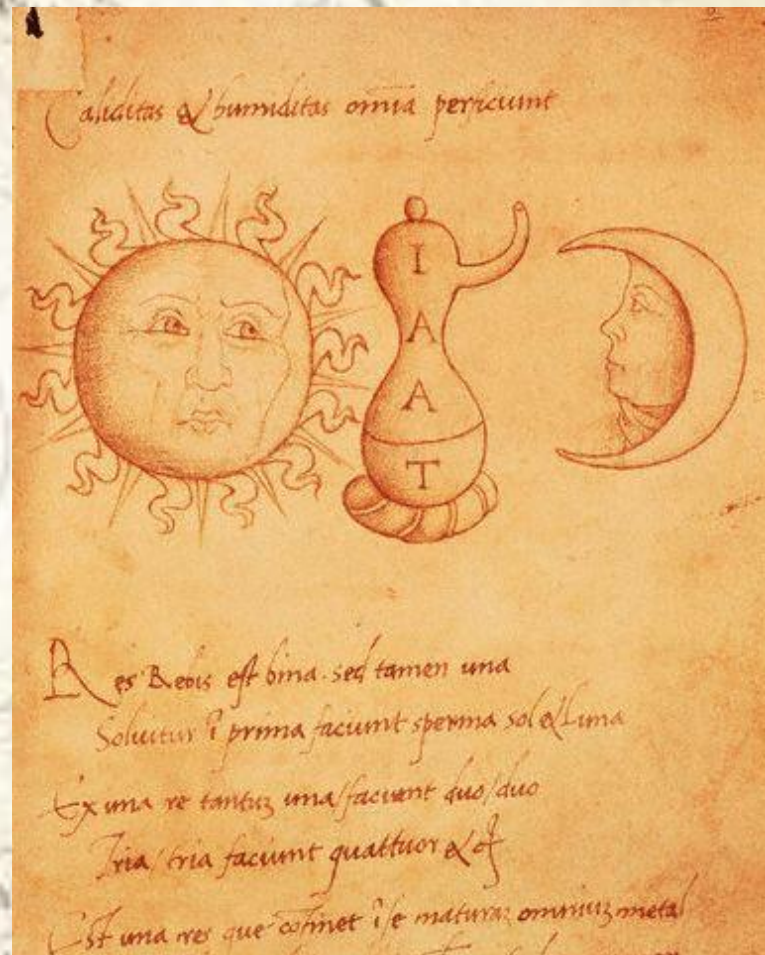 Caliditas & humiditas omnia perficiunt
I
A
A
T
Res Rebis est bina sed tamen una
Soluitur ī prima faciunt sperma sol & Luna
Ex una re tantuʒ una / faciunt duo / duo
Tria / tria faciunt quattuor &
Est una res que cōtinet ī se naturaʒ omniuʒ metal